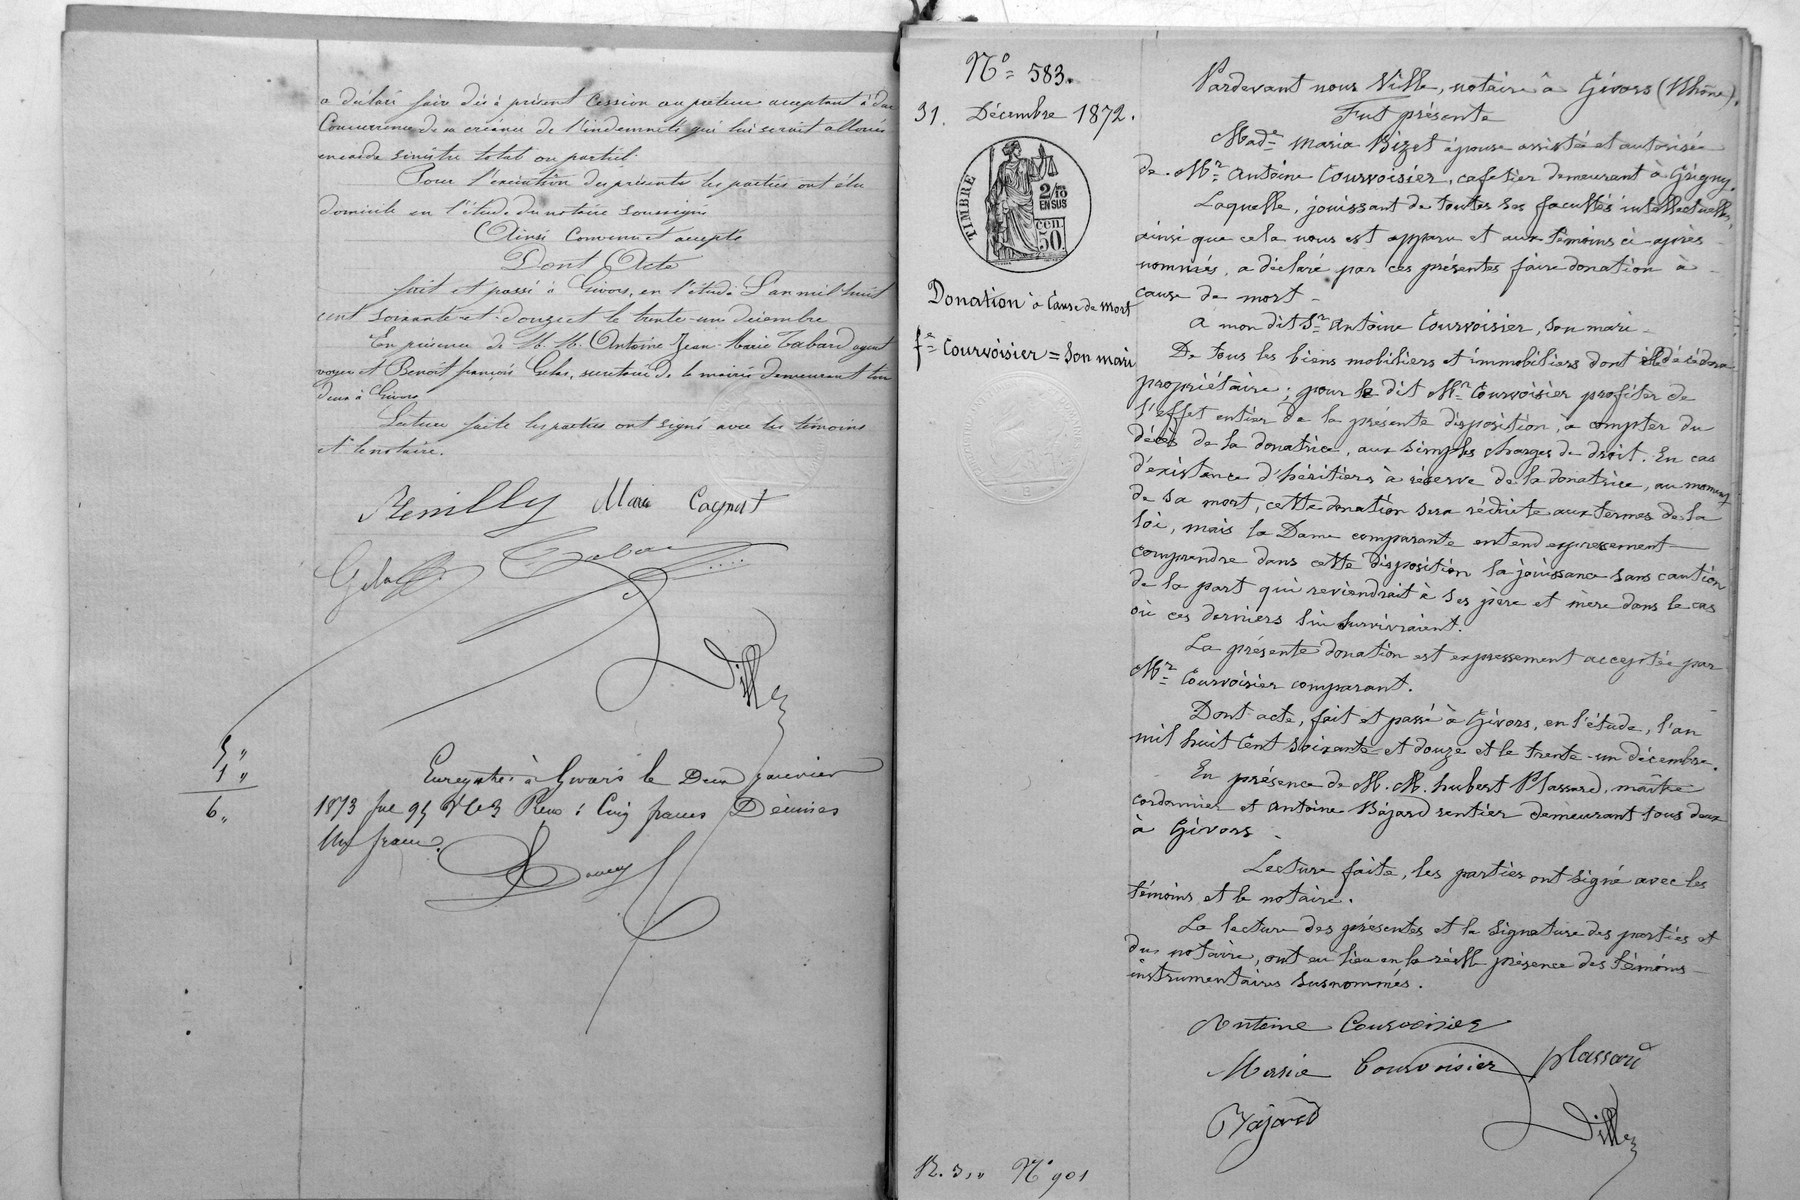 a déclaré faire dès à présent cession au prêteur acceptant à due
Concurrence de sa créance de l'indemnité qui lui serait allouée
en cas de sinistre total ou partiel.
Pour l'exécution des présentes les parties ont élu
domicile en l'étude du notaire soussigné
Ainsi convenu et accepté
Dont Acte
fait et passé à Givors, en l'étude L'an mil huit
cent soixante-et-douze et le trente-un décembre
En présence de M. M. Antoine Jean-Marie Tabard agent
voyer et Benoit françois Gelas, secrétaire de la mairie demeurant tous
deux à Givors
Lecture faite les parties ont signé avec les témoins
et le notaire.
Remilly Marie Cagnot
Gelas Tabard
Ville
5 "
1 "
6 "
Enregistré à Givors le Deux janvier
1873 fol 95 Reçu : Cinq francs Décimes
Un franc.
N° 583.
31. Décembre 1872.
TIMBRE
2/10
EN SUS
50 cen
Donation à Cause de mort
fe Courvoisier = Son mari
Pardevant nous Ville, notaire à Givors (Rhône).
Fut présente
Made Maria Bizet épouse assistée et autorisée
de Mr Antoine Courvoisier, cafetier demeurant à Grigny.
Laquelle, jouissant de toutes ses facultés intellectuelles,
ainsi que cela nous est apparu et aux témoins ci-après
nommés, a déclaré par ces présentes faire donation à
cause de mort
A mon dit Sr Antoine Courvoisier, son mari
De tous les biens mobiliers et immobiliers dont elle décédera
propriétaire ; pour le dit Mr Courvoisier profiter de
l'effet entier de la présente disposition, à compter du
décès de la donatrice, aux simples charges de droit. En cas
d'existence d'héritiers à réserve de la donatrice, au moment
de sa mort, cette donation sera réduite aux termes de la
loi, mais la Dame comparante entend expressement
comprendre dans cette disposition la jouissance sans caution
de la part qui reviendrait à ses père et mère dans le cas
où ces derniers lui survivraient.
La présente donation est expressement acceptée par
Mr Courvoisier comparant.
Dont acte, fait et passé à Givors, en l'étude, l'an
mil huit cent soixante et douze et le trente-un décembre.
En présence de M. M. hubert Plassard, maître
cordonnier et Antoine Bajard rentier demeurant tous deux
à Givors
Lecture faite, les parties ont signé avec les
témoins et le notaire.
La lecture des présentes et la signature des parties et
du notaire, ont eu lieu en la réelle présence des témoins
instrumentaires susnommés.
Antoine Courvoisier
Maria Courvoisier plassard
Bajard Ville
R. 3 " N° 901